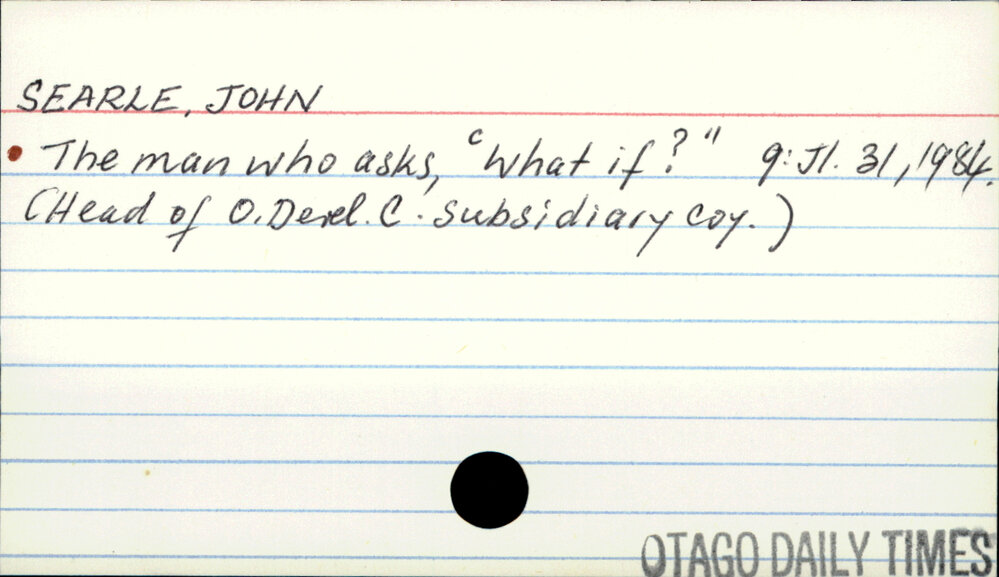 SEARLE, JOHN
• The man who asks, "What if?" 9: Jl. 31, 1984.
(Head of O. Devel. C. subsidiary coy.)
OTAGO DAILY TIMES